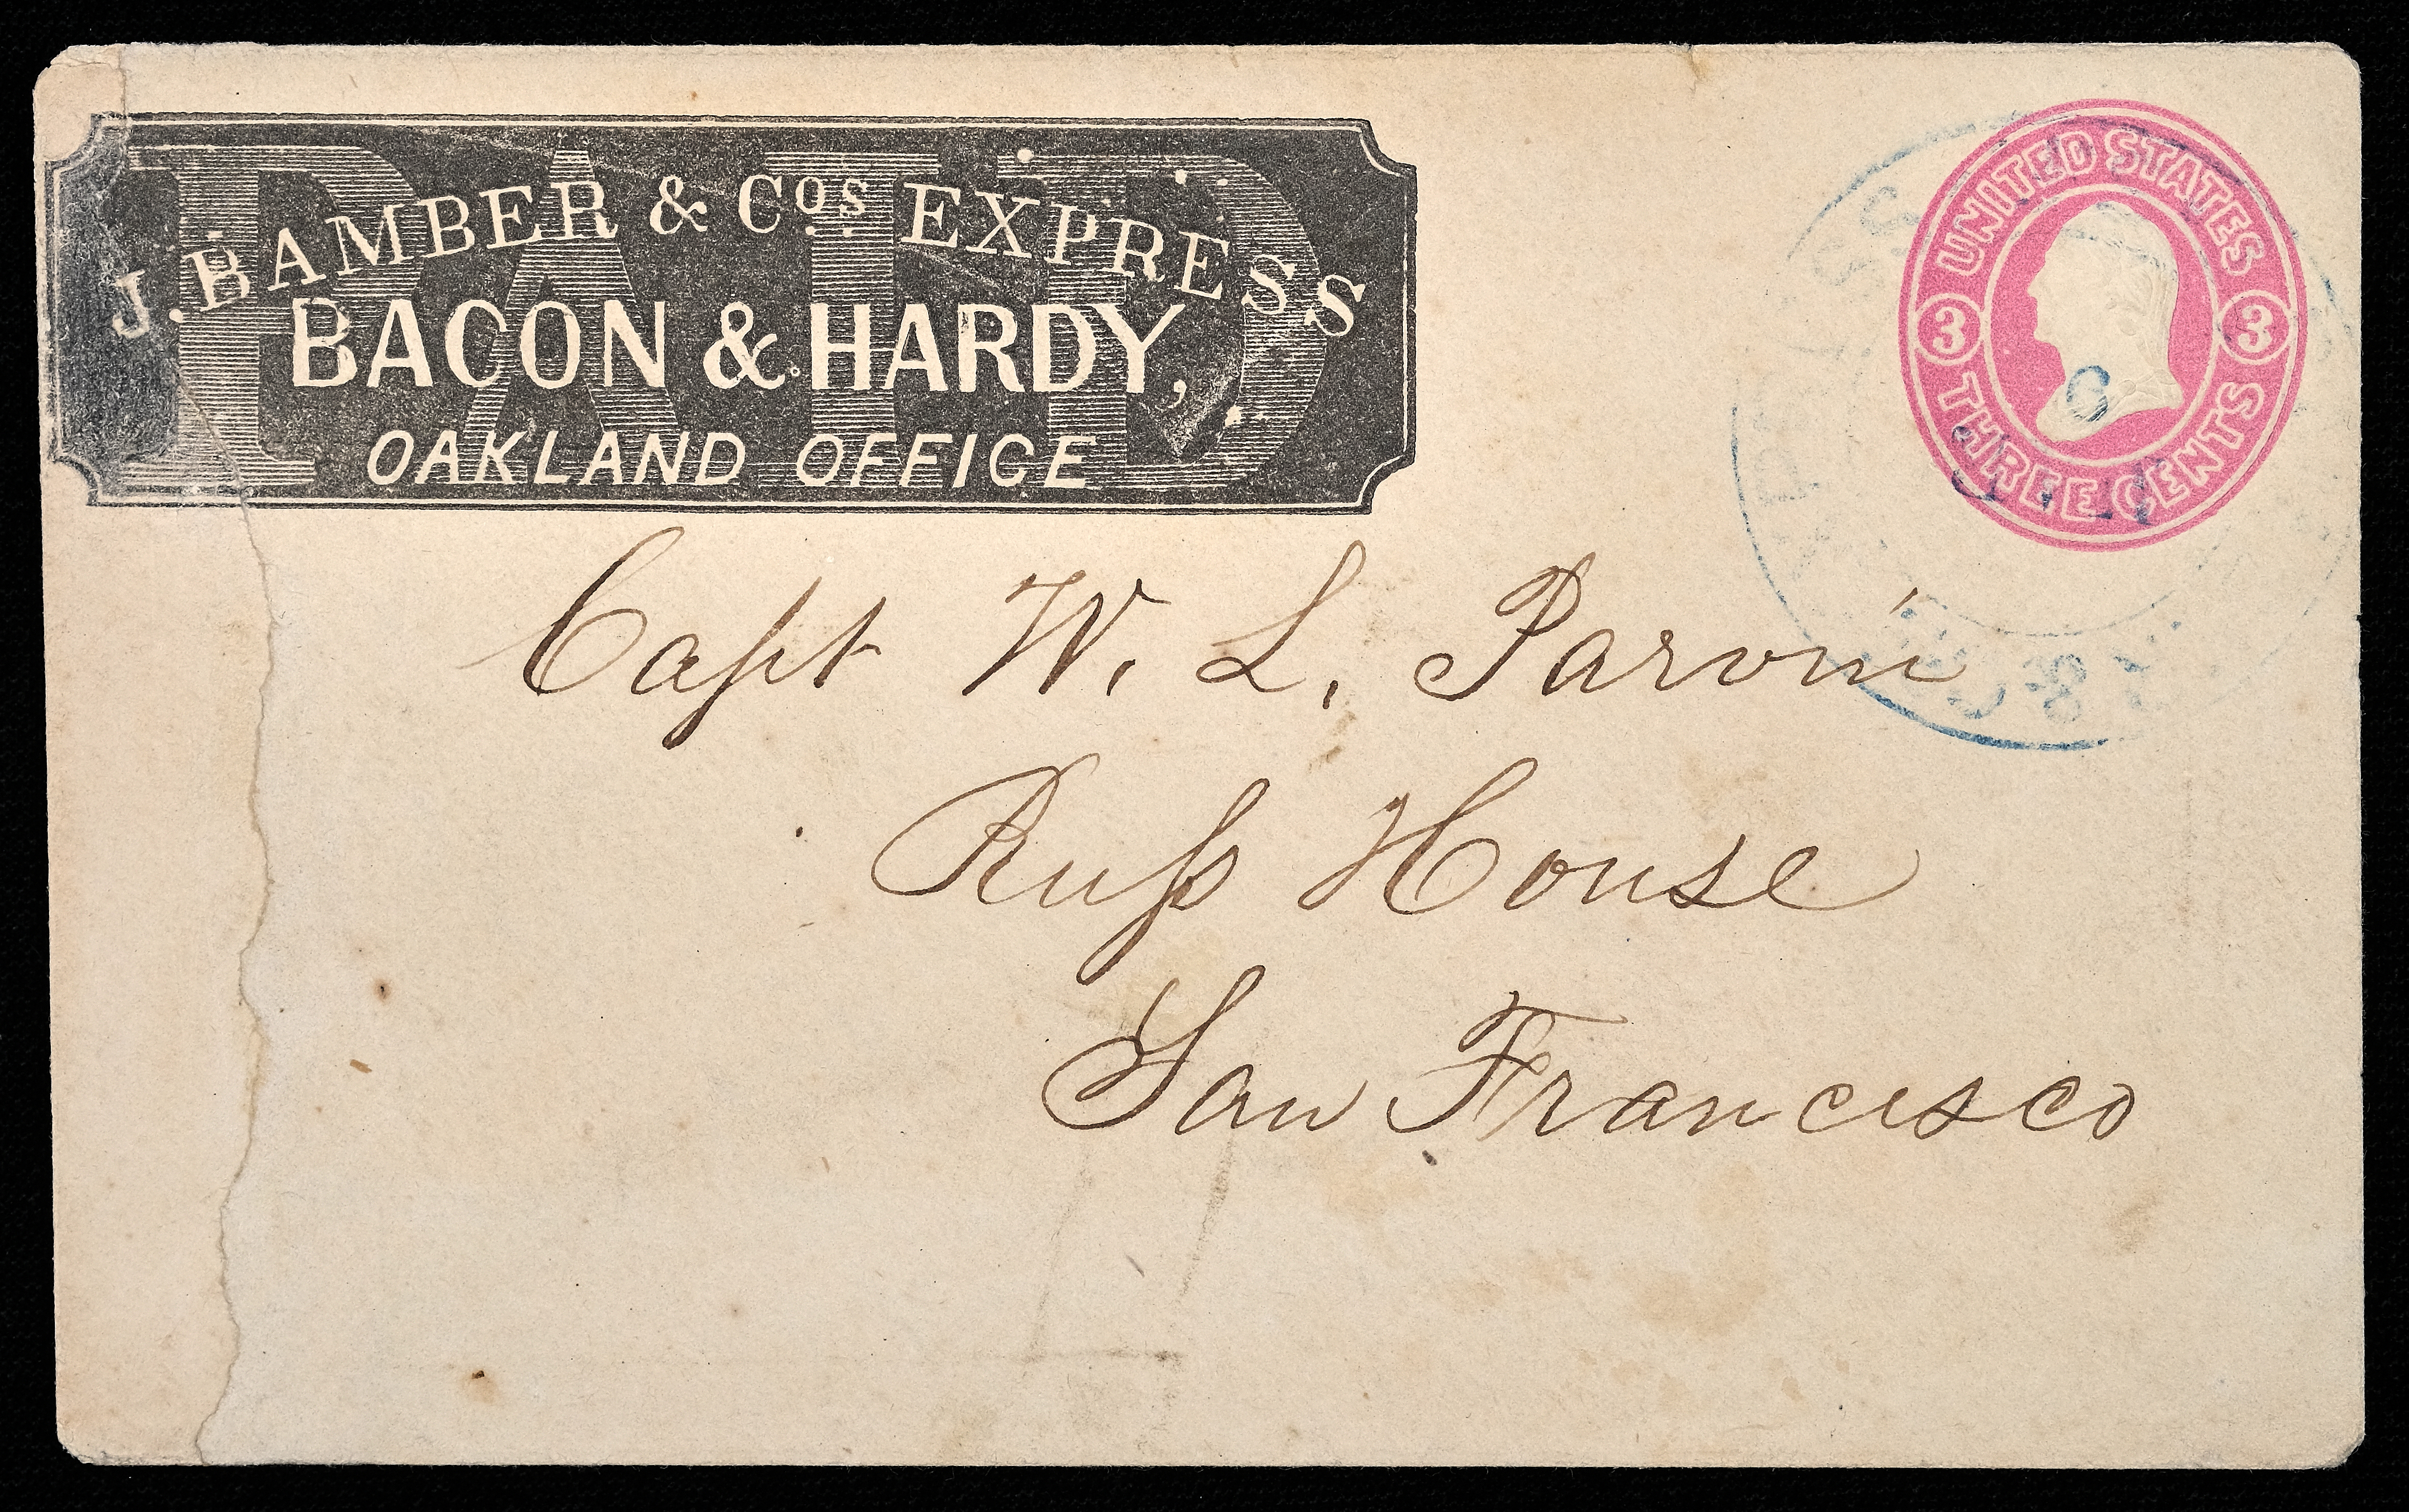 PAID
J. BAMBER & Cos EXPRESS
BACON & HARDY,
OAKLAND OFFICE
UNITED STATES
3 3
THREE CENTS
6
Capt W. L. Parvin
Ruſs House
San Francisco